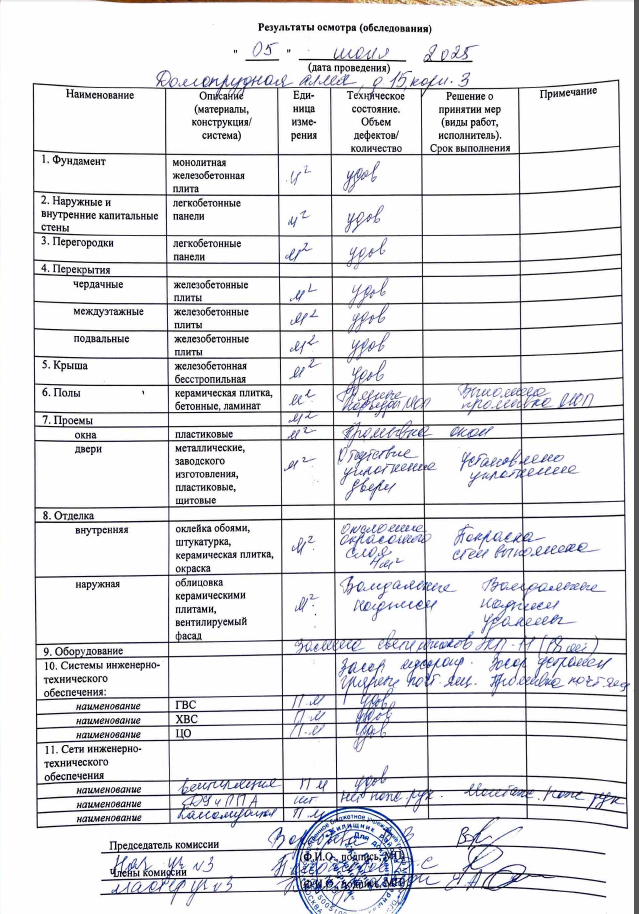 Результаты осмотра (обследования)
" 05 " июня 2025
(дата проведения)
Долгопрудная аллея, д 15 корп. 3
Наименование Описание (материалы, конструкция/ система) Еди-ница изме-рения Техническое состояние. Объем дефектов/ количество Решение о принятии мер (виды работ, исполнитель). Срок выполнения Примечание
1. Фундамент монолитная железобетонная плита м² удов
2. Наружные и внутренние капитальные стены легкобетонные панели м² удов
3. Перегородки легкобетонные панели м² удов
4. Перекрытия
чердачные железобетонные плиты м² удов
междуэтажные железобетонные плиты м² удов
подвальные железобетонные плиты м² удов
5. Крыша железобетонная бесстропильная м² удов
6. Полы керамическая плитка, бетонные, ламинат м² МОП Выполнена промывка МОП
7. Проемы м²
окна пластиковые м² Промывка окон
двери металлические, заводского изготовления, пластиковые, щитовые м² Отсутствие уплотнения двери Установлено уплотнение
8. Отделка
внутренняя оклейка обоями, штукатурка, керамическая плитка, окраска м² отслоение окрасочного слоя 4м² Покраска стен выполнена
наружная облицовка керамическими плитами, вентилируемый фасад м² Вандальные надписи Вандальные надписи удалены
9. Оборудование Замена светильников
10. Системы инженерно-технического обеспечения: Засор мусоропр. Засор устранен
почт. ящ. Промывка почт. ящ
наименование ГВС П.м удов
наименование ХВС П.м удов
наименование ЦО П.м удов
11. Сети инженерно-технического обеспечения
наименование вентиляция П м удов
наименование ДУ и ППА шт нет пож рук. Монтаж пож рук
наименование канализация П м
Председатель комиссии
Нач уч №3 Ф.И.О., подпись, МП
Члены комиссии
мастер уч №3 Ф.И.О., подпись, МП